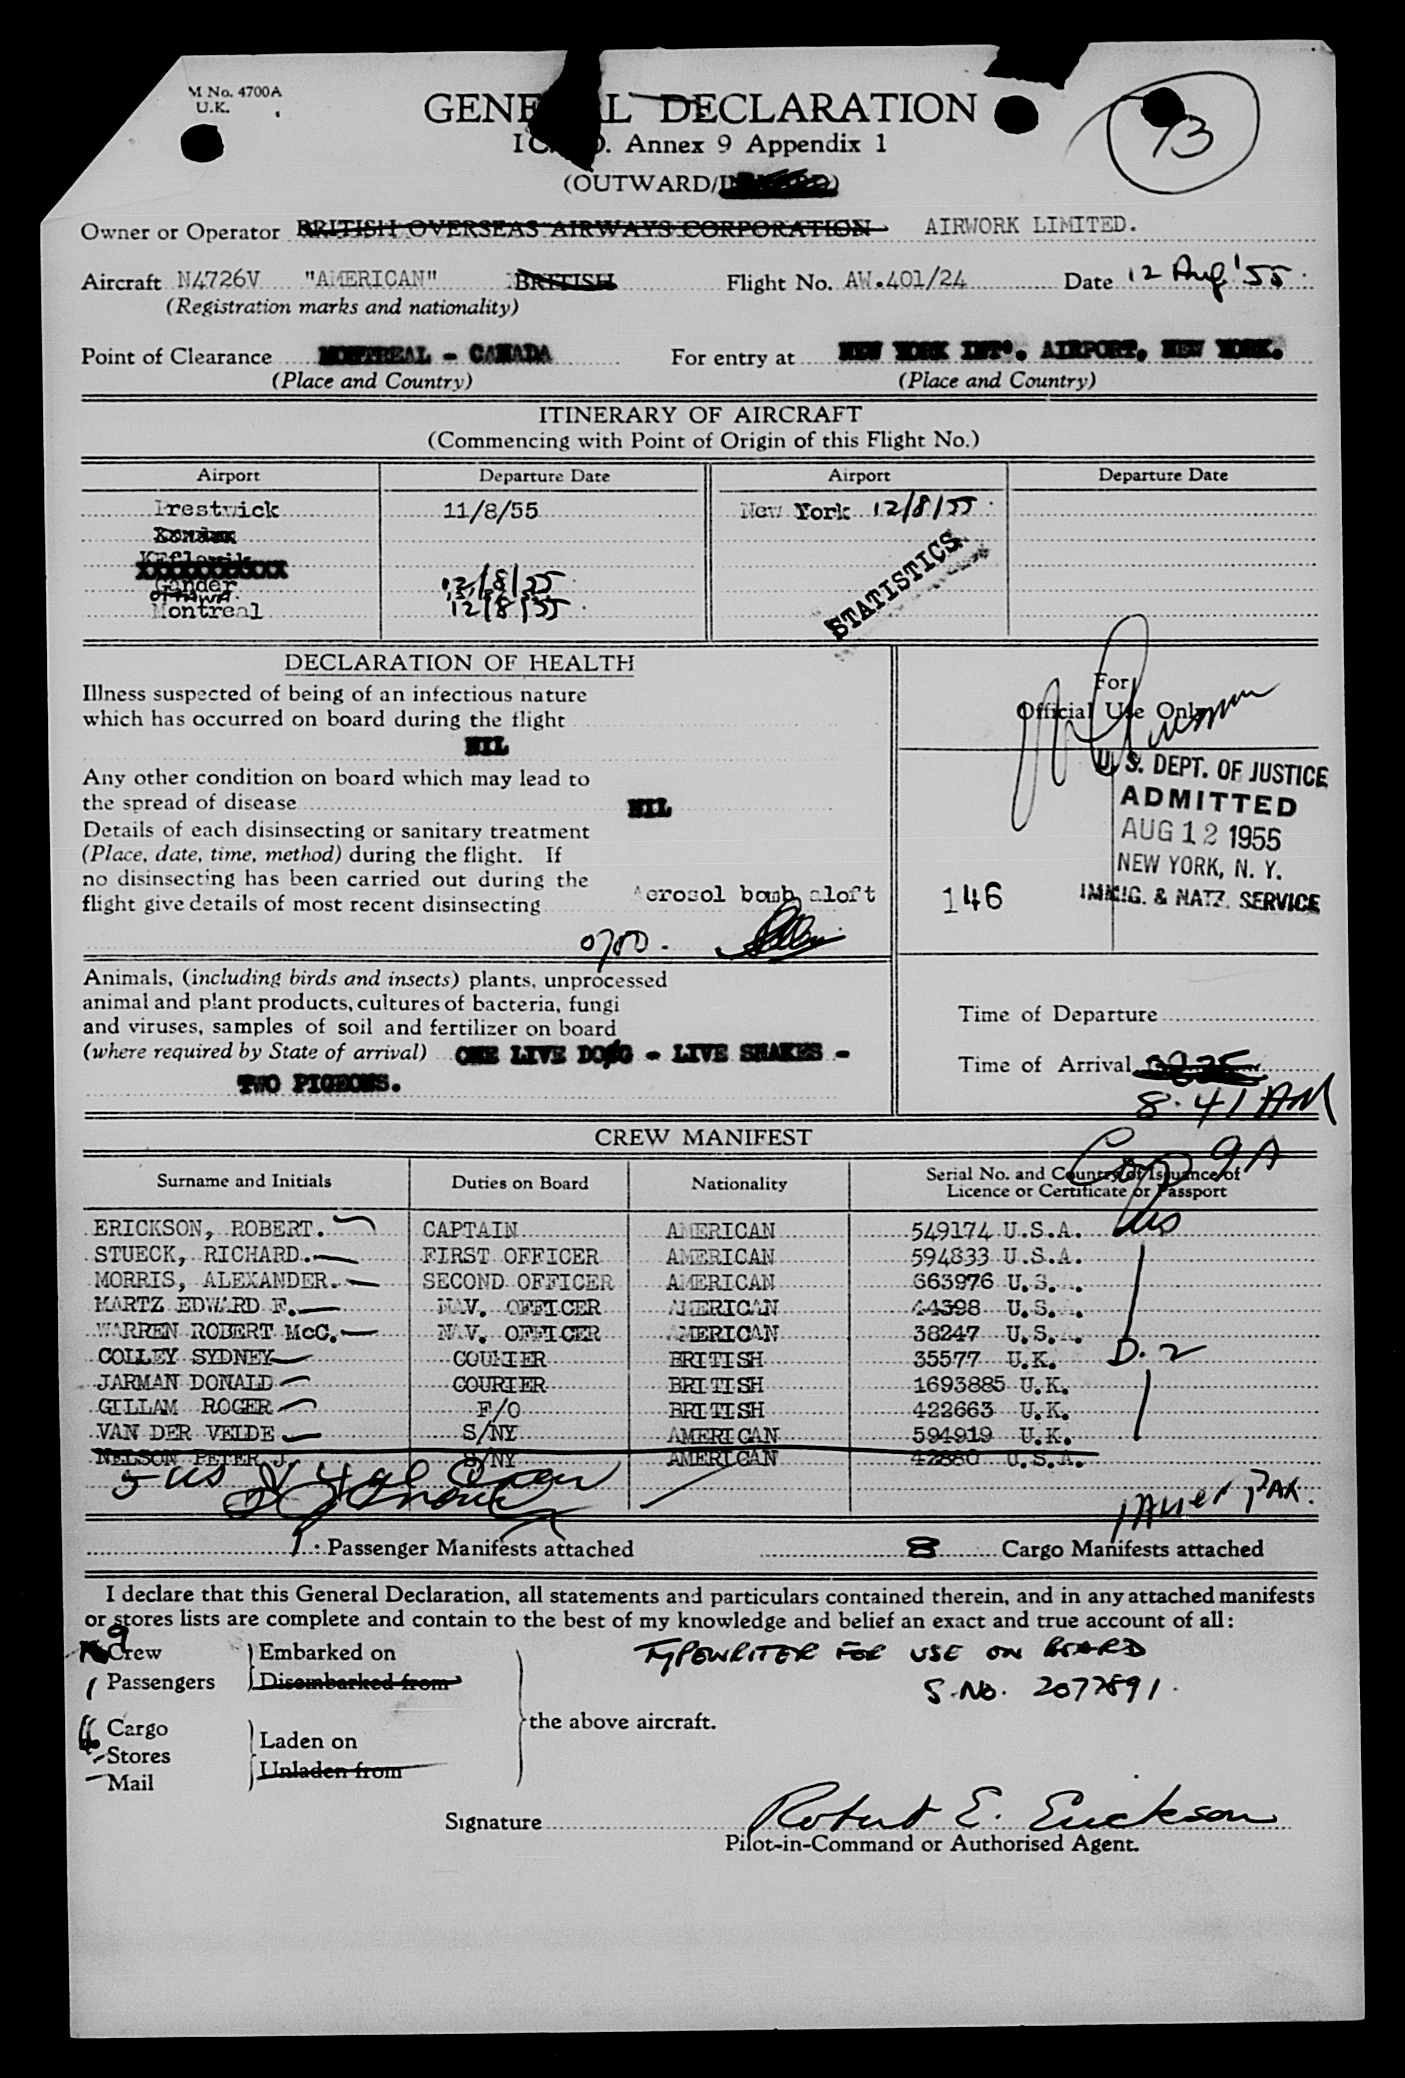 M No. 4700A
U.K.
GENE L DECLARATION
IC O. Annex 9 Appendix 1
73
(OUTWARD/
Owner or Operator BRITISH OVERSEAS AIRWAYS CORPORATION AIRWORK LIMITED.
Aircraft N4726V "AMERICAN" BRITISH Flight No. AW.401/24 Date 12 Aug '55
(Registration marks and nationality)
Point of Clearance MONTREAL - CANADA For entry at NEW YORK INT'. AIRPORT, NEW YORK.
(Place and Country) (Place and Country)
ITINERARY OF AIRCRAFT
(Commencing with Point of Origin of this Flight No.)
Airport Departure Date Airport Departure Date
Prestwick 11/8/55 New York 12/8/55
London
Keflavik
XXXXXXXXXXX
Gander 12/8/55
OTTAWA
Montreal 12/8/55
STATISTICS
DECLARATION OF HEALTH
Illness suspected of being of an infectious nature
which has occurred on board during the flight
NIL
Any other condition on board which may lead to
the spread of disease NIL
Details of each disinsecting or sanitary treatment
(Place, date, time, method) during the flight. If
no disinsecting has been carried out during the
flight give details of most recent disinsecting Aerosol bomb aloft
0700.
Animals, (including birds and insects) plants, unprocessed
animal and plant products, cultures of bacteria, fungi
and viruses, samples of soil and fertilizer on board
(where required by State of arrival) ONE LIVE DOG - LIVE SNAKES -
TWO PIGEONS.
For
Official Use Only
U. S. DEPT. OF JUSTICE
ADMITTED
AUG 12 1955
NEW YORK, N. Y.
IMMIG. & NATZ. SERVICE
146
Time of Departure
Time of Arrival
8.41 AM
CREW MANIFEST
Cop 9A
Surname and Initials Duties on Board Nationality Serial No. and Country of Issuance of
Licence or Certificate or Passport
ERICKSON, ROBERT. CAPTAIN AMERICAN 549174 U.S.A. US
STUECK, RICHARD. FIRST OFFICER AMERICAN 594833 U.S.A.
MORRIS, ALEXANDER. SECOND OFFICER AMERICAN 663976 U.S.A.
MARTZ EDWARD F. NAV. OFFICER AMERICAN 44398 U.S.A.
WARREN ROBERT McC. NAV. OFFICER AMERICAN 38247 U.S.A.
COLLEY SYDNEY COURIER BRITISH 35577 U.K. D.2
JARMAN DONALD COURIER BRITISH 1693885 U.K.
GILLAM ROGER F/O BRITISH 422663 U.K.
VAN DER VELDE S/NY AMERICAN 594919 U.K.
NELSON PETER J. S/NY AMERICAN 42880 U.S.A.
5 US
1 Alien PAX.
1 Passenger Manifests attached 8 Cargo Manifests attached
I declare that this General Declaration, all statements and particulars contained therein, and in any attached manifests
or stores lists are complete and contain to the best of my knowledge and belief an exact and true account of all:
9 Crew Embarked on
1 Passengers Disembarked from
TYPEWRITER FOR USE ON BOARD
S.No. 2077891.
the above aircraft.
Cargo
Stores
Mail
Laden on
Unladen from
Signature Robert E. Erickson
Pilot-in-Command or Authorised Agent.